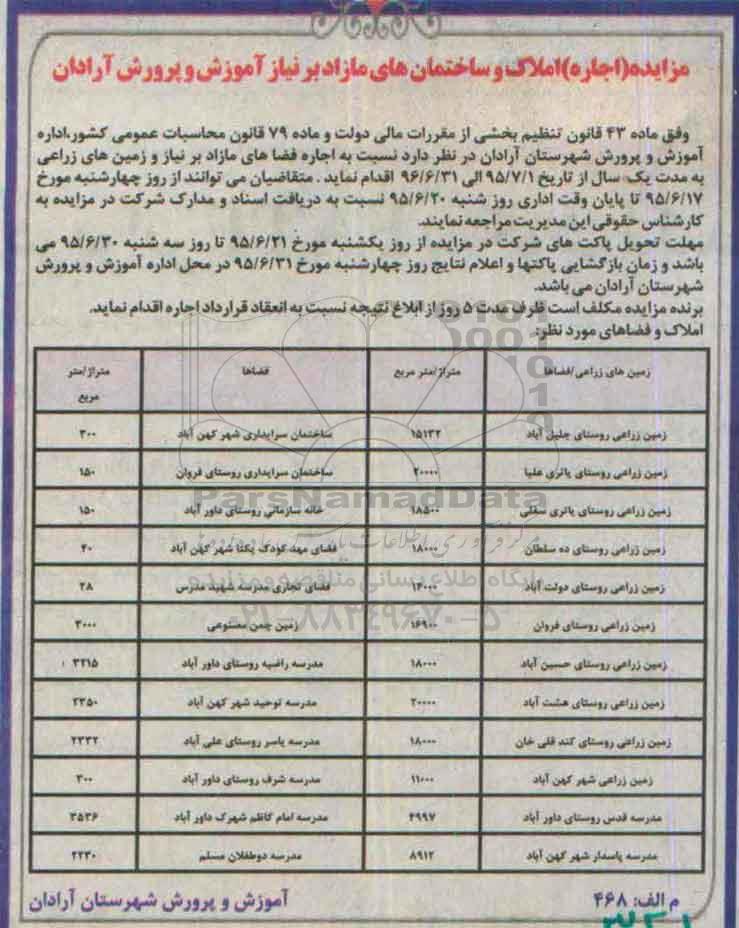 مزایده(اجاره)املاک و ساختمان های مازاد بر نیاز آموزش و پرورش آرادان
وفق ماده ۴۳ قانون تنظیم بخشی از مقررات مالی دولت و ماده ۷۹ قانون محاسبات عمومی کشور،اداره
آموزش و پرورش شهرستان آرادان در نظر دارد نسبت به اجاره فضا های مازاد بر نیاز و زمین های زراعی
به مدت یک سال از تاریخ ۹۵/۷/۱ الی ۹۶/۶/۳۱ اقدام نماید . متقاضیان می توانند از روز چهارشنبه مورخ
۹۵/۶/۱۷ تا پایان وقت اداری روز شنبه ۹۵/۶/۲۰ نسبت به دریافت اسناد و مدارک شرکت در مزایده به
کارشناس حقوقی این مدیریت مراجعه نمایند.
مهلت تحویل پاکت های شرکت در مزایده از روز یکشنبه مورخ ۹۵/۶/۲۱ تا روز سه شنبه ۹۵/۶/۳۰ می
باشد و زمان بازگشایی پاکتها و اعلام نتایج روز چهارشنبه مورخ ۹۵/۶/۳۱ در محل اداره آموزش و پرورش
شهرستان آرادان می باشد.
برنده مزایده مکلف است ظرف مدت ۵ روز از ابلاغ نتیجه نسبت به انعقاد قرارداد اجاره اقدام نماید.
املاک و فضاهای مورد نظر:
زمین های زراعی/فضاها متراژ/متر مربع فضاها متراژ/متر مربع
زمین زراعی روستای جلیل آباد ۱۵۱۳۲ ساختمان سرایداری شهر کهن آباد ۳۰۰
زمین زراعی روستای یاتری علیا ۲۰۰۰۰ ساختمان سرایداری روستای فروان ۱۵۰
زمین زراعی روستای یاتری سفلی ۱۸۵۰۰ خانه سازمانی روستای داور آباد ۱۵۰
زمین زراعی روستای ده سلطان ۱۸۰۰۰ فضای مهد کودک یکتا شهر کهن آباد ۴۰
زمین زراعی روستای دولت آباد ۱۴۰۰۰ فضای تجاری مدرسه شهید مدرس ۲۸
زمین زراعی روستای فروان ۱۶۹۰۰ زمین چمن مصنوعی ۳۰۰۰
زمین زراعی روستای حسین آباد ۱۸۰۰۰ مدرسه راضیه روستای داور آباد ۳۲۱۵
زمین زراعی روستای هشت آباد ۲۰۰۰۰ مدرسه توحید شهر کهن آباد ۲۳۵۰
زمین زراعی روستای کند قلی خان ۱۸۰۰۰ مدرسه یاسر روستای علی آباد ۲۳۳۲
زمین زراعی شهر کهن آباد ۱۱۰۰۰ مدرسه شرف روستای داور آباد ۳۰۰
مدرسه قدس روستای داور آباد ۴۹۹۷ مدرسه امام کاظم شهرک داور آباد ۳۵۳۶
مدرسه پاسدار شهر کهن آباد ۸۹۱۲ مدرسه دوطفلان مسلم ۲۲۳۰
ParsNamadData
پایگاه اطلاع رسانی مناقصه و مزایده
۰۲۱-۸۸۳۴۹۶۷۰-۵
م الف: ۴۶۸
آموزش و پرورش شهرستان آرادان